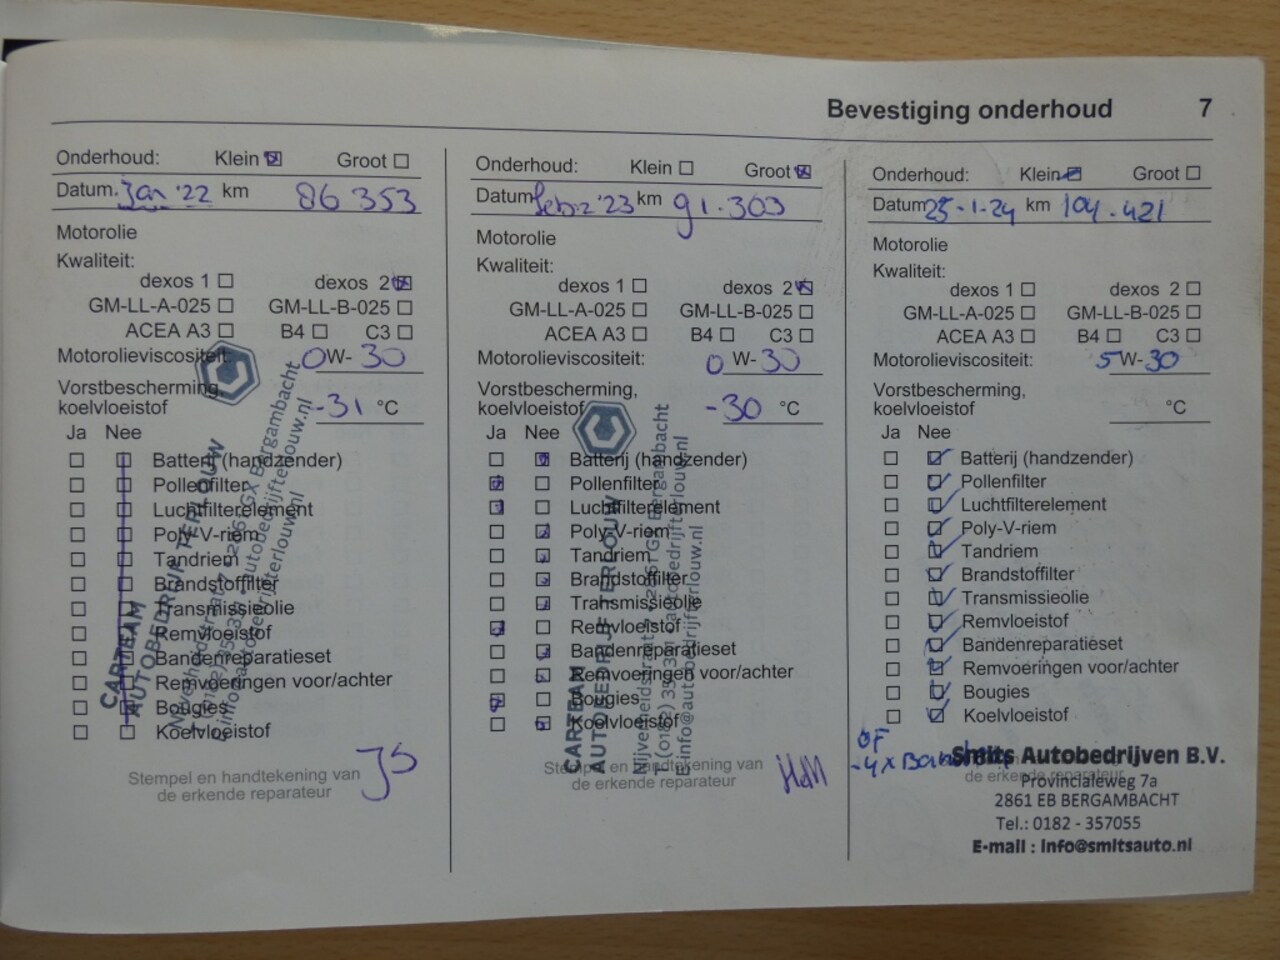 Bevestiging onderhoud 7
Onderhoud: Klein Groot
Datum. Jan '22 km 86 353
Motorolie
Kwaliteit:
dexos 1 dexos 2
GM-LL-A-025 GM-LL-B-025
ACEA A3 B4 C3
Motorolieviscositeit: 0W-30
Vorstbescherming,
koelvloeistof -31 °C
Ja Nee
Batterij (handzender)
Pollenfilter
Luchtfilterelement
Poly-V-riem
Tandriem
Brandstoffilter
Transmissieolie
Remvloeistof
Bandenreparatieset
Remvoeringen voor/achter
Bougies
Koelvloeistof
CARTEAM
AUTOBEDRIJF TERLOUW
Stempel en handtekening van
de erkende reparateur
JS
Onderhoud: Klein Groot
Datum '23 km 91.303
Motorolie
Kwaliteit:
dexos 1 dexos 2
GM-LL-A-025 GM-LL-B-025
ACEA A3 B4 C3
Motorolieviscositeit: 0 W-30
Vorstbescherming,
koelvloeistof -30 °C
Ja Nee
Batterij (handzender)
Pollenfilter
Luchtfilterelement
Poly-V-riem
Tandriem
Brandstoffilter
Transmissieolie
Remvloeistof
Bandenreparatieset
Remvoeringen voor/achter
Bougies
Koelvloeistof
CARTEAM
AUTOBEDRIJF TERLOUW
Stempel en handtekening van
de erkende reparateur
Onderhoud: Klein Groot
Datum 25-1-24 km 104.421
Motorolie
Kwaliteit:
dexos 1 dexos 2
GM-LL-A-025 GM-LL-B-025
ACEA A3 B4 C3
Motorolieviscositeit: 5W-30
Vorstbescherming,
koelvloeistof °C
Ja Nee
Batterij (handzender)
Pollenfilter
Luchtfilterelement
Poly-V-riem
Tandriem
Brandstoffilter
Transmissieolie
Remvloeistof
Bandenreparatieset
Remvoeringen voor/achter
Bougies
Koelvloeistof
OF
-4x
Smits Autobedrijven B.V.
de erkende reparateur
Provincialeweg 7a
2861 EB BERGAMBACHT
Tel.: 0182 - 357055
E-mail : info@smitsauto.nl